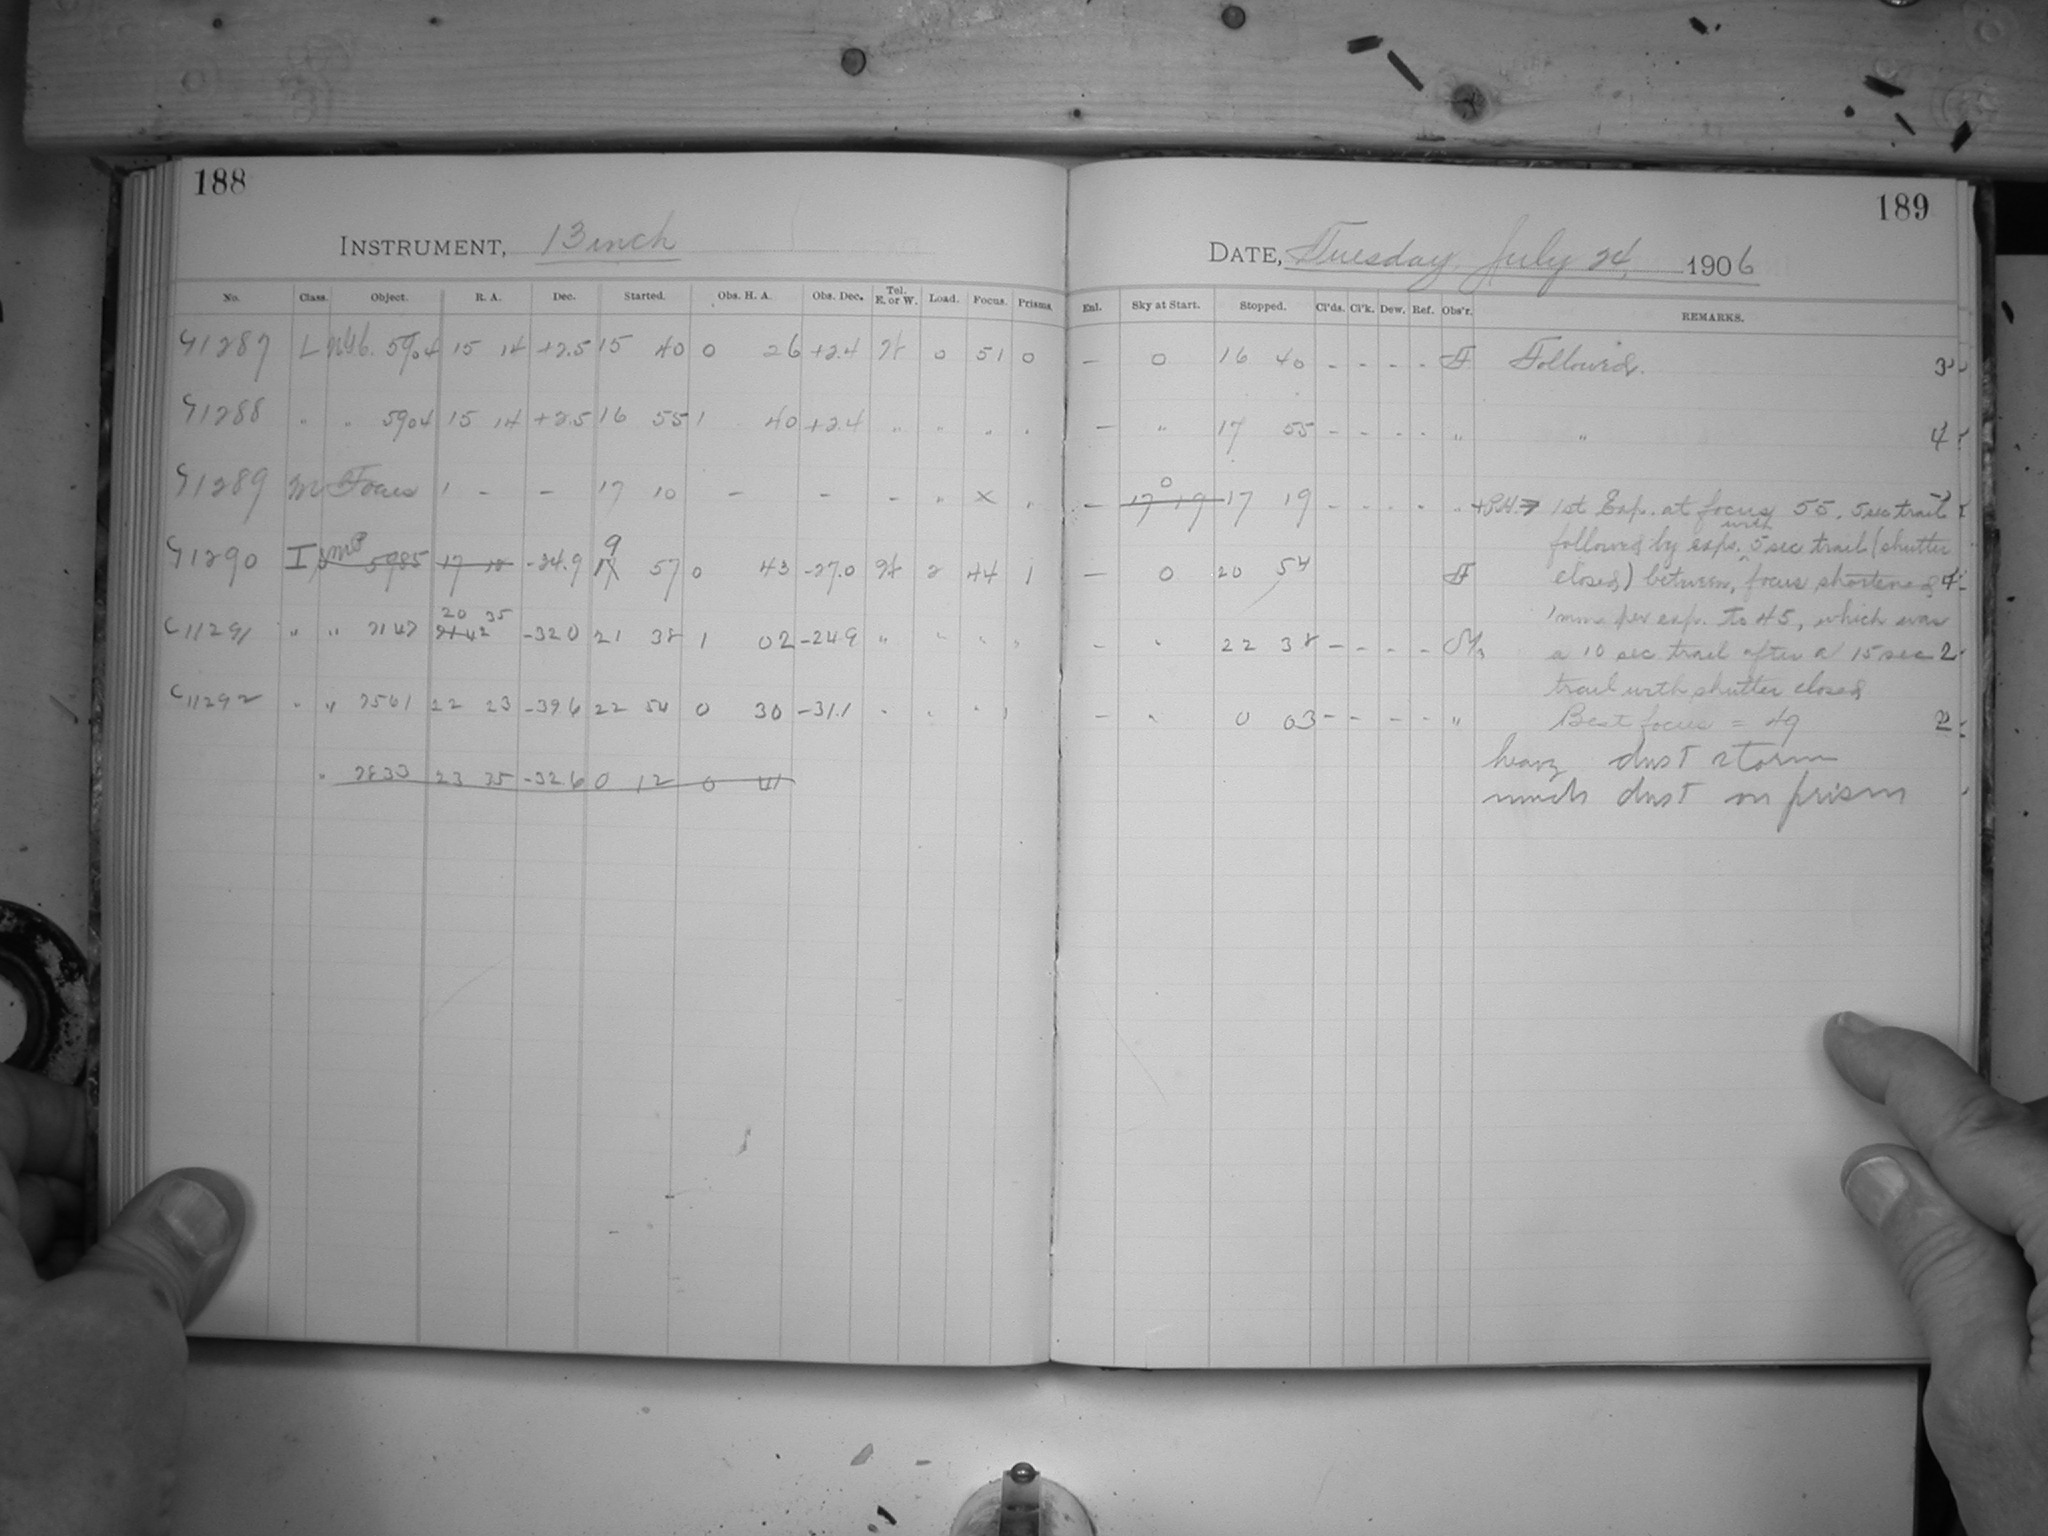 188
INSTRUMENT, 13 inch
No. Class. Object. R. A. Dec. Started. Obs. H. A. Obs. Dec. Tel. E. or W. Load. Focus. Prisms.
5904 15 14 +2.5 15 40 0 26 +2.4 0 51 0
" " 5904 15 14 +2.5 16 55 1 40 +2.4 " " " "
M Focus - - 17 10 - - - " X "
I 5985 17 18 -24.9 9 57 0 43 -27.0 2 44 1
" " 7147 20 35 -32.0 21 38 1 02 -24.9 " " " "
" " 7561 22 23 -39.6 22 54 0 30 -31.1
" 7833 23 35 -32.6 0 12 0 41
189
DATE, Tuesday, July 24, 1906
Enl. Sky at Start. Stopped. Cl'ds. Cl'k. Dew. Ref. Obs'r. REMARKS.
- 0 16 40 - - - - Followed. 3
- " 17 55 - - - - " " 4
- 0 17 19 17 19 - - - - " 1st Exp. at focus 55. 5 sec trail
followed by exps. with 5 sec trail (shutter
- 0 20 54 closed) between, focus shortened 4
1 mm per exp. to 45, which was
- " 22 38 - - - - a 10 sec trail after a 15 sec 2
trail with shutter closed
- " 0 03 - - - - " Best focus = 49 2
heavy dust storm
much dust on prism